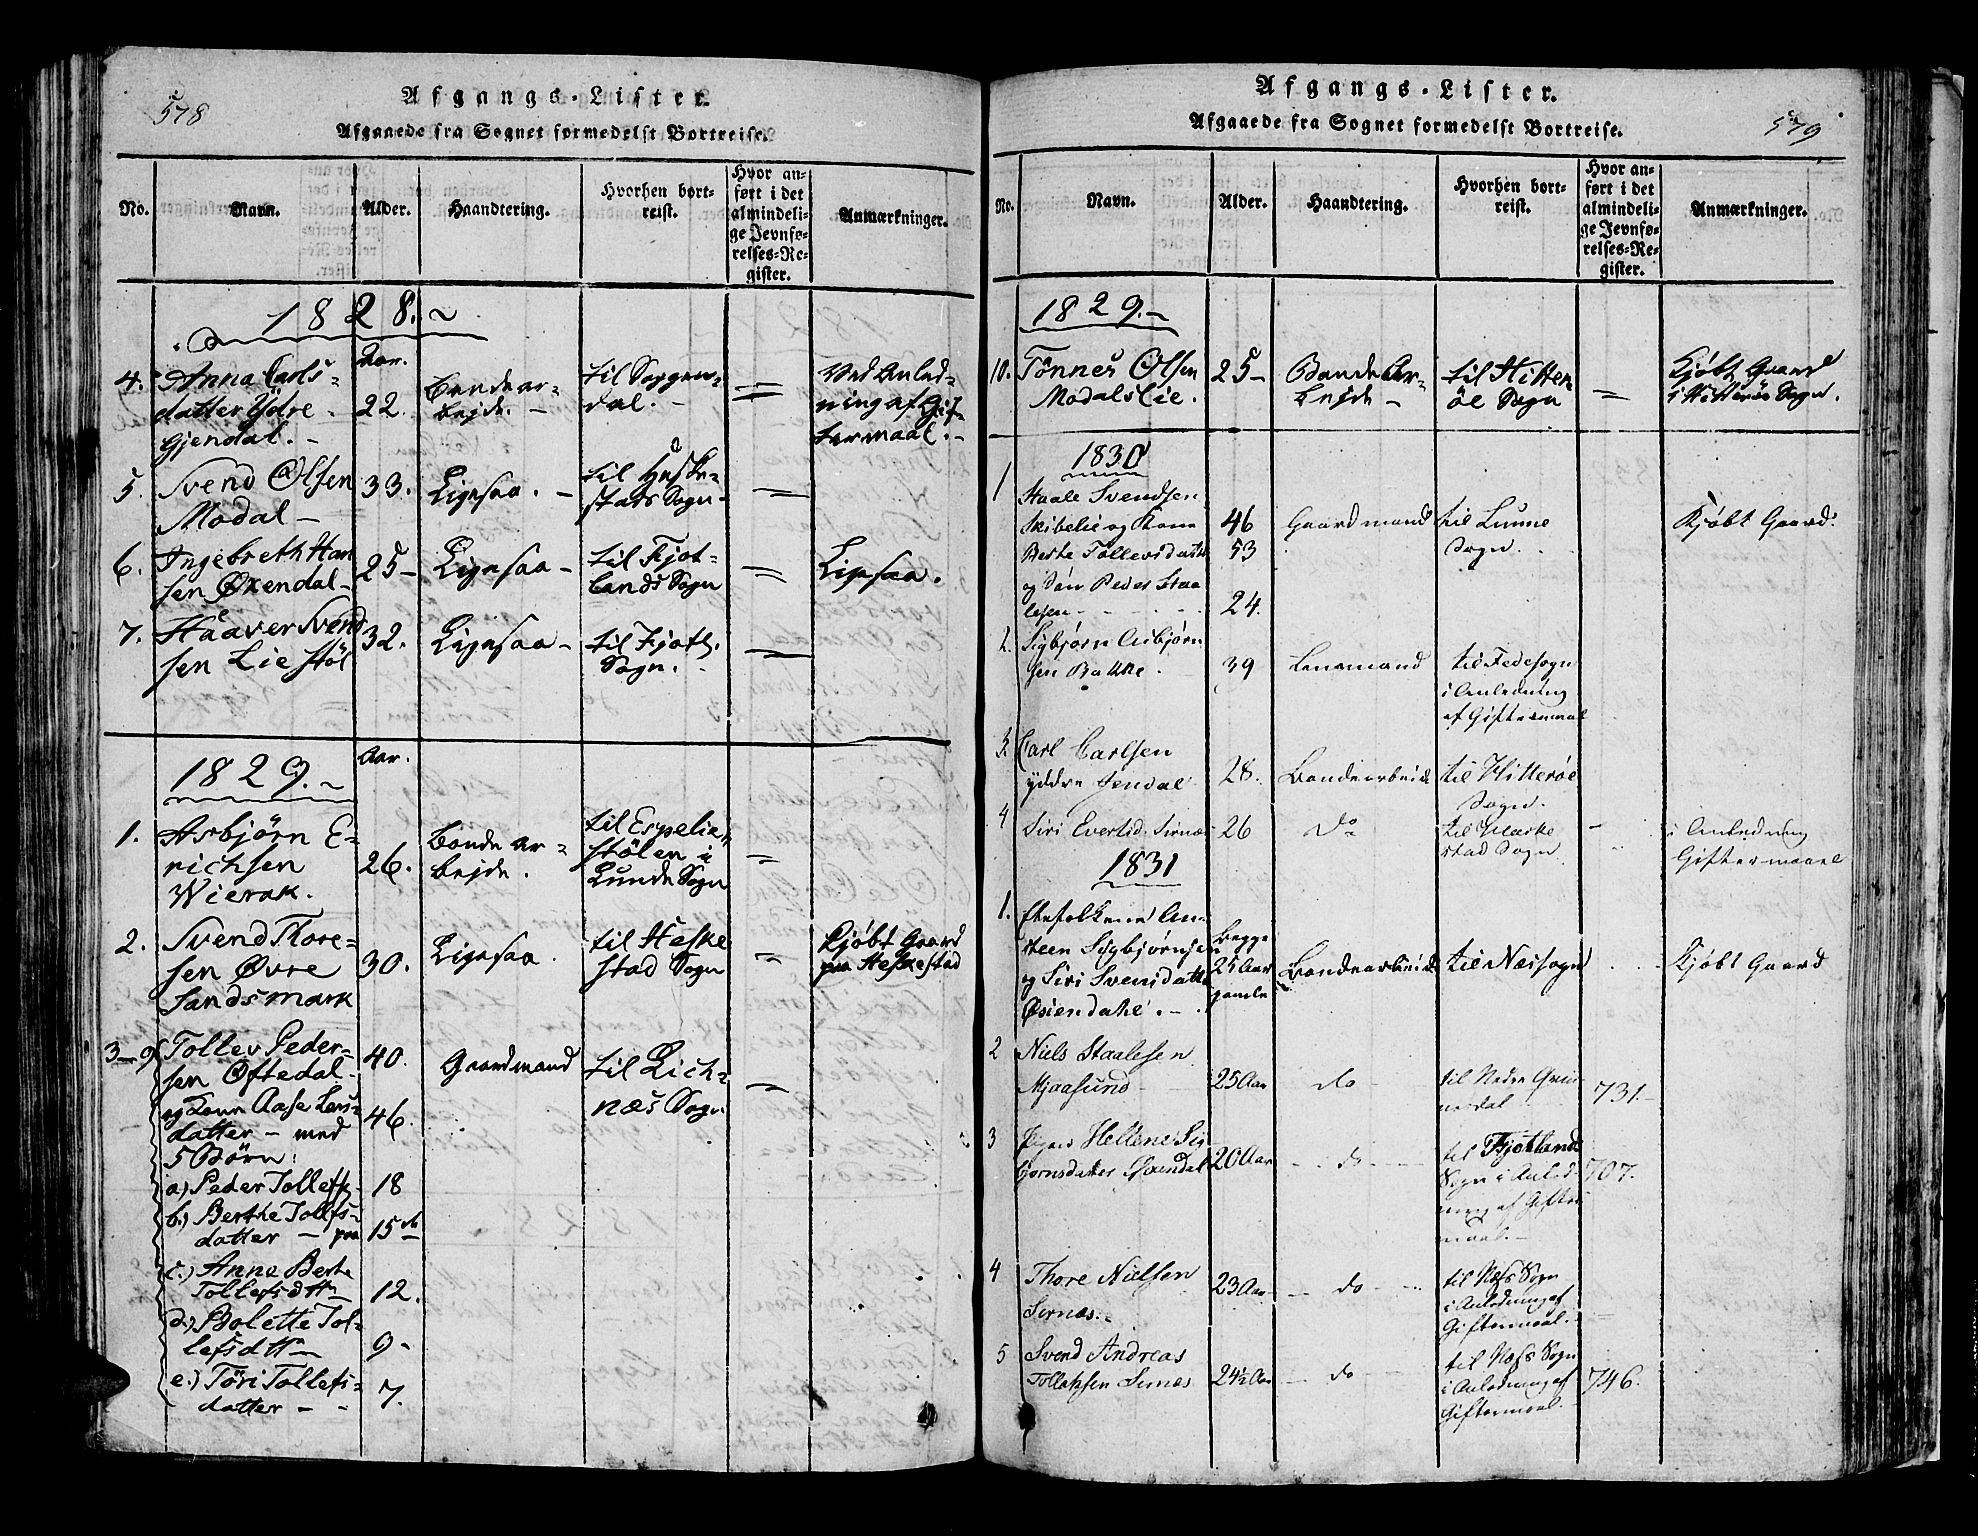 578
Afgangs-Lister.
Afgaaede fra Sognet formedelst Bortreise.
No.
Navn.
Alder.
Haandtering.
Hvorhen bort-
reist.
Hvor an-
ført i det
almindeli-
ge Jevnfø-
relses-Re-
gister.
Anmærkninger.
1828.
Aar.
4. Anna Carls- datter Ydre Gjendal. 22. Bondear- bejde. til Soggen- dal. = Ved Anled- ning af Gif- termaal.
5. Svend Olsen Modal 33. Ligesaa. til Heske- stats Sogn =
6. Ingebreth Han sen Øxendal 25 Ligesaa til Fjot- lands Sogn = Ligesaa.
7. Haaver Svend sen Liestøl 32. Ligesaa til Fjotl. Sogn. =
1829.
Aar.
1. Asbjørn E- richsen Wierak. 26. Bondear- bejde. til Espelie- stølen i Lunde Sogn =
2. Svend Thore- sen Øvre Sandsmark 30. Ligesaa. til Heske stad Sogn = Kjøbt Gaard paa Heskestad
3-9 Tollev Peder- sen Øftedal 40. Gaardmand til Lich- næs Sogn =
og Kone Aase Lars- datter - med 46.
5 Børn:
a) Peder Tollefs. 18
b.) Berthe Tollefs- datter - paa 15de
c.) Anne Berte Tollefsdttr 12.
d.) Bolette Tol- lefsdttr 9
e.) Töri Tollefs- datter 7.
579
Afgangs-Lister.
Afgaaede fra Sognet formedelst Bortreise.
No.
Navn.
Alder.
Haandtering.
Hvorhen bort-
reist.
Hvor an-
ført i det
almindeli-
ge Jevnfø-
relses-Re-
gister.
Anmærkninger.
1829.
10. Tönnes Olsen Modalslie. 25 Bondear- bejde til Hitter öe Sogn = Kjøbt Gaard i Hitteröe Sogn.
1830
1 Staale Svendsen Skibelie og Kone 46 Gaardmand til Lunne Sogn. Kjøbt Gaard.
Berte Tollevsdatter 53
og Søn Peder Staa lesen 24.
2. Sigbjørn Asbjørn sen Bakke 39 Lensmand til Fedesogn i Anledning af Giftermaal
3. Carl Carlsen yddre Jendal 28. Bondearbeide til Hitterøe Sogn.
4 Siri Evertsd. Sirnæs 26 do til stad Sogn i Anledning Giftermaal
1831
1. Ægtefolkene steen Sigbjørnsen og Siri Svensdatter Øxendahl. Begge 25 Aar gamle Bondearbeide til Næssogn Kjøbt Gaard
2 Niels Staalesen Mjaasund 25 Aar do til Nedre 731.
3 Hellene Sig bjørnsdatter Øxendal 20 Aar do til Fjotland Sogn i Anled ning af Gifter maal. 707.
4 Thore Nielsen Sernæs. 23 Aar do til Næss Sogn i Anledning af Giftermaal.
5 Svend Andreas Tollefsen Sirnæs 24½ Aar do til Næss Sogn i Anledning af Giftermaal. 746.